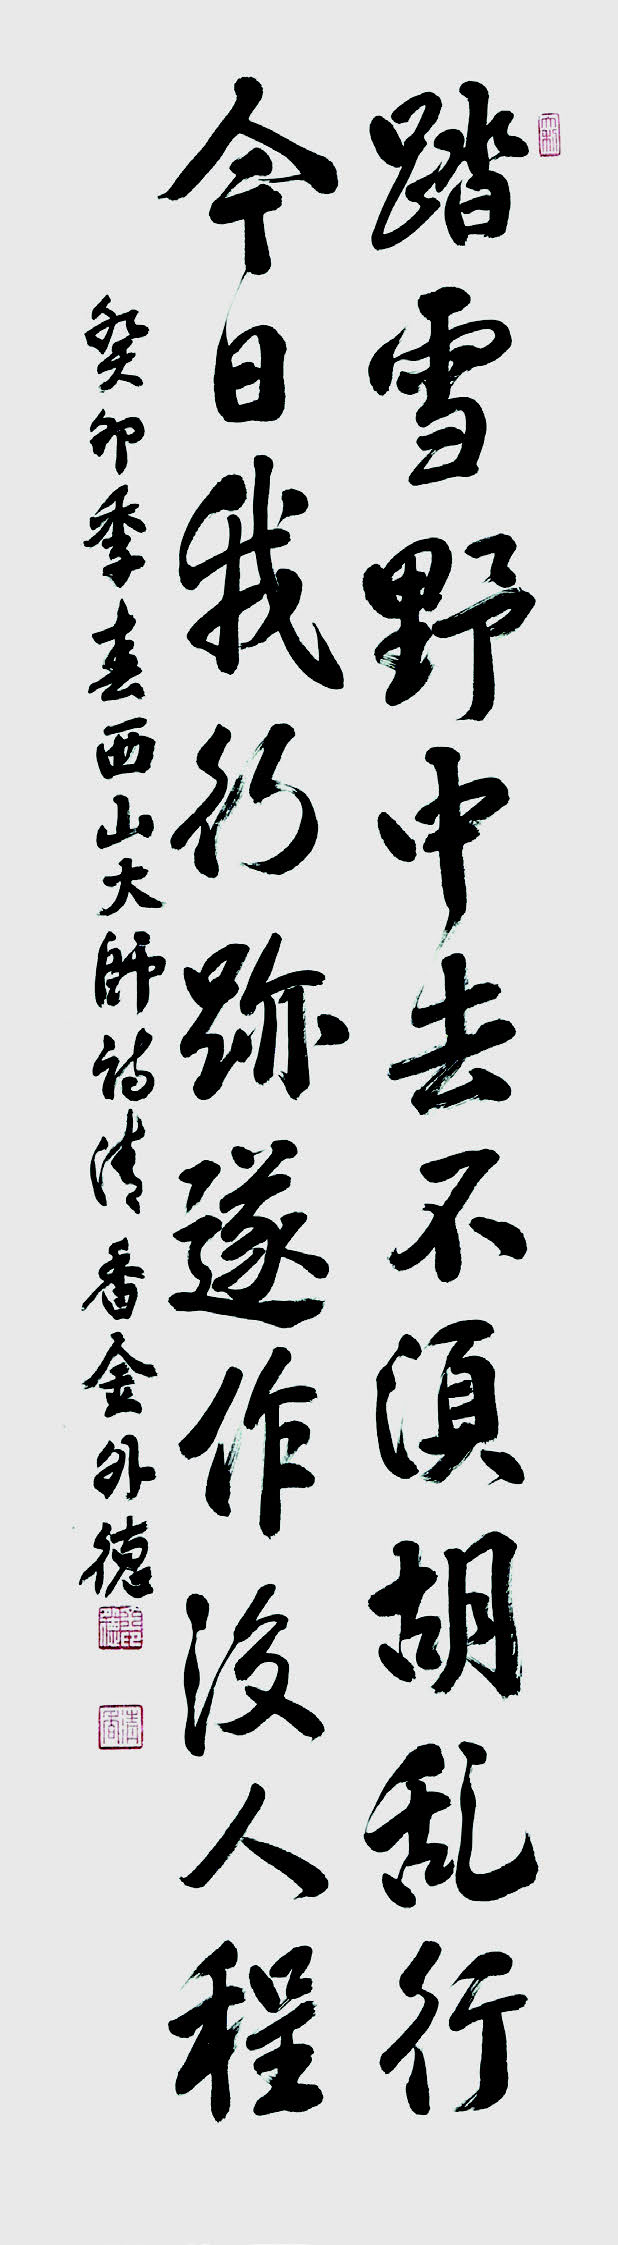 踏雪野中去不須胡乱行
今日我行跡遂作後人程
癸卯季春西山大師詩清香金外德